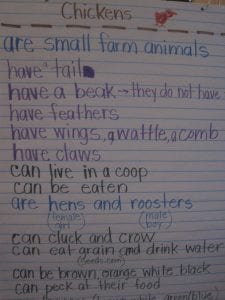 Chickens
are small farm animals
have a tail
have a beak → they do not have
have feathers
have wings, a wattle, a comb
have claws
can live in a coop
can be eaten
are hens and roosters
(female girl) (male boy)
can cluck and crow
can eat grain and drink water
can be brown, orange white black
can peck at their food